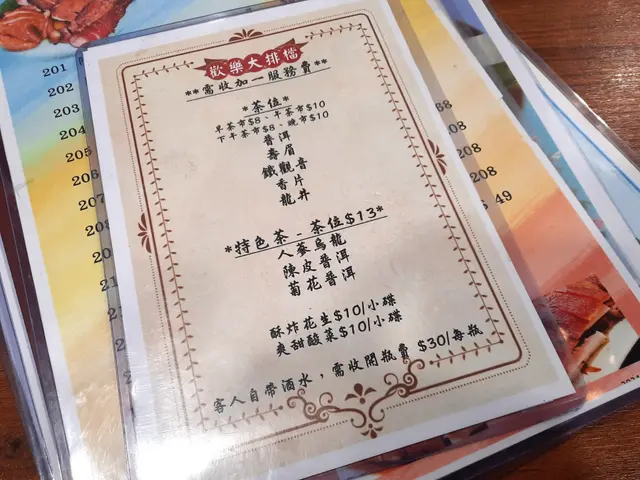 歡樂大排檔
**需收加一服務費**
*茶位*
早茶市$8、午茶市$10
下午茶市$8、晚市$10
普洱
壽眉
鐵觀音
香片
龍井
*特色茶 - 茶位$13*
人蔘烏龍
陳皮普洱
菊花普洱
酥炸花生$10/小碟
爽甜酸菜$10/小碟
客人自帶酒水，需收開瓶費 $30/每瓶
201
202
203
204
205
206
207
208
209
210
211
212
208
208
49